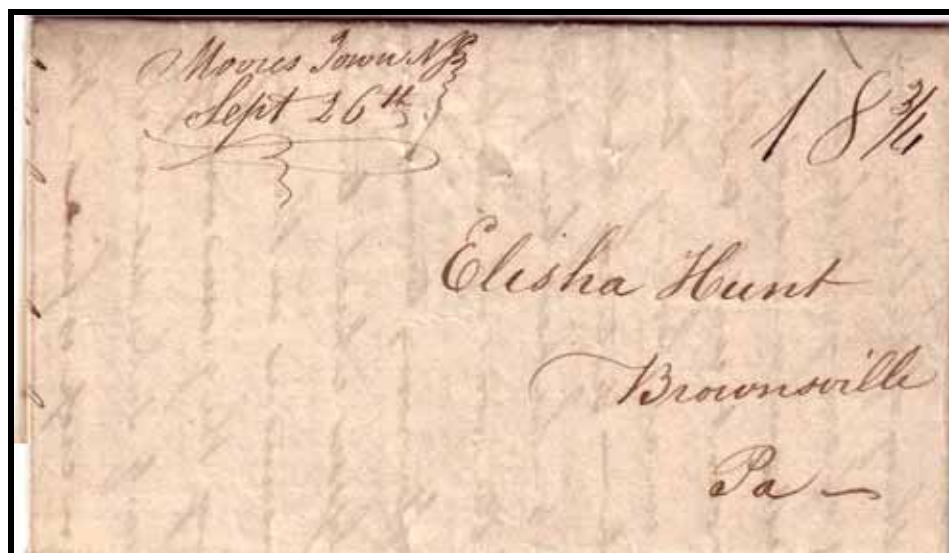 Moores Town NJ
Sept 26th
18 3/4
Elisha Hunt
Brownsville
Pa —